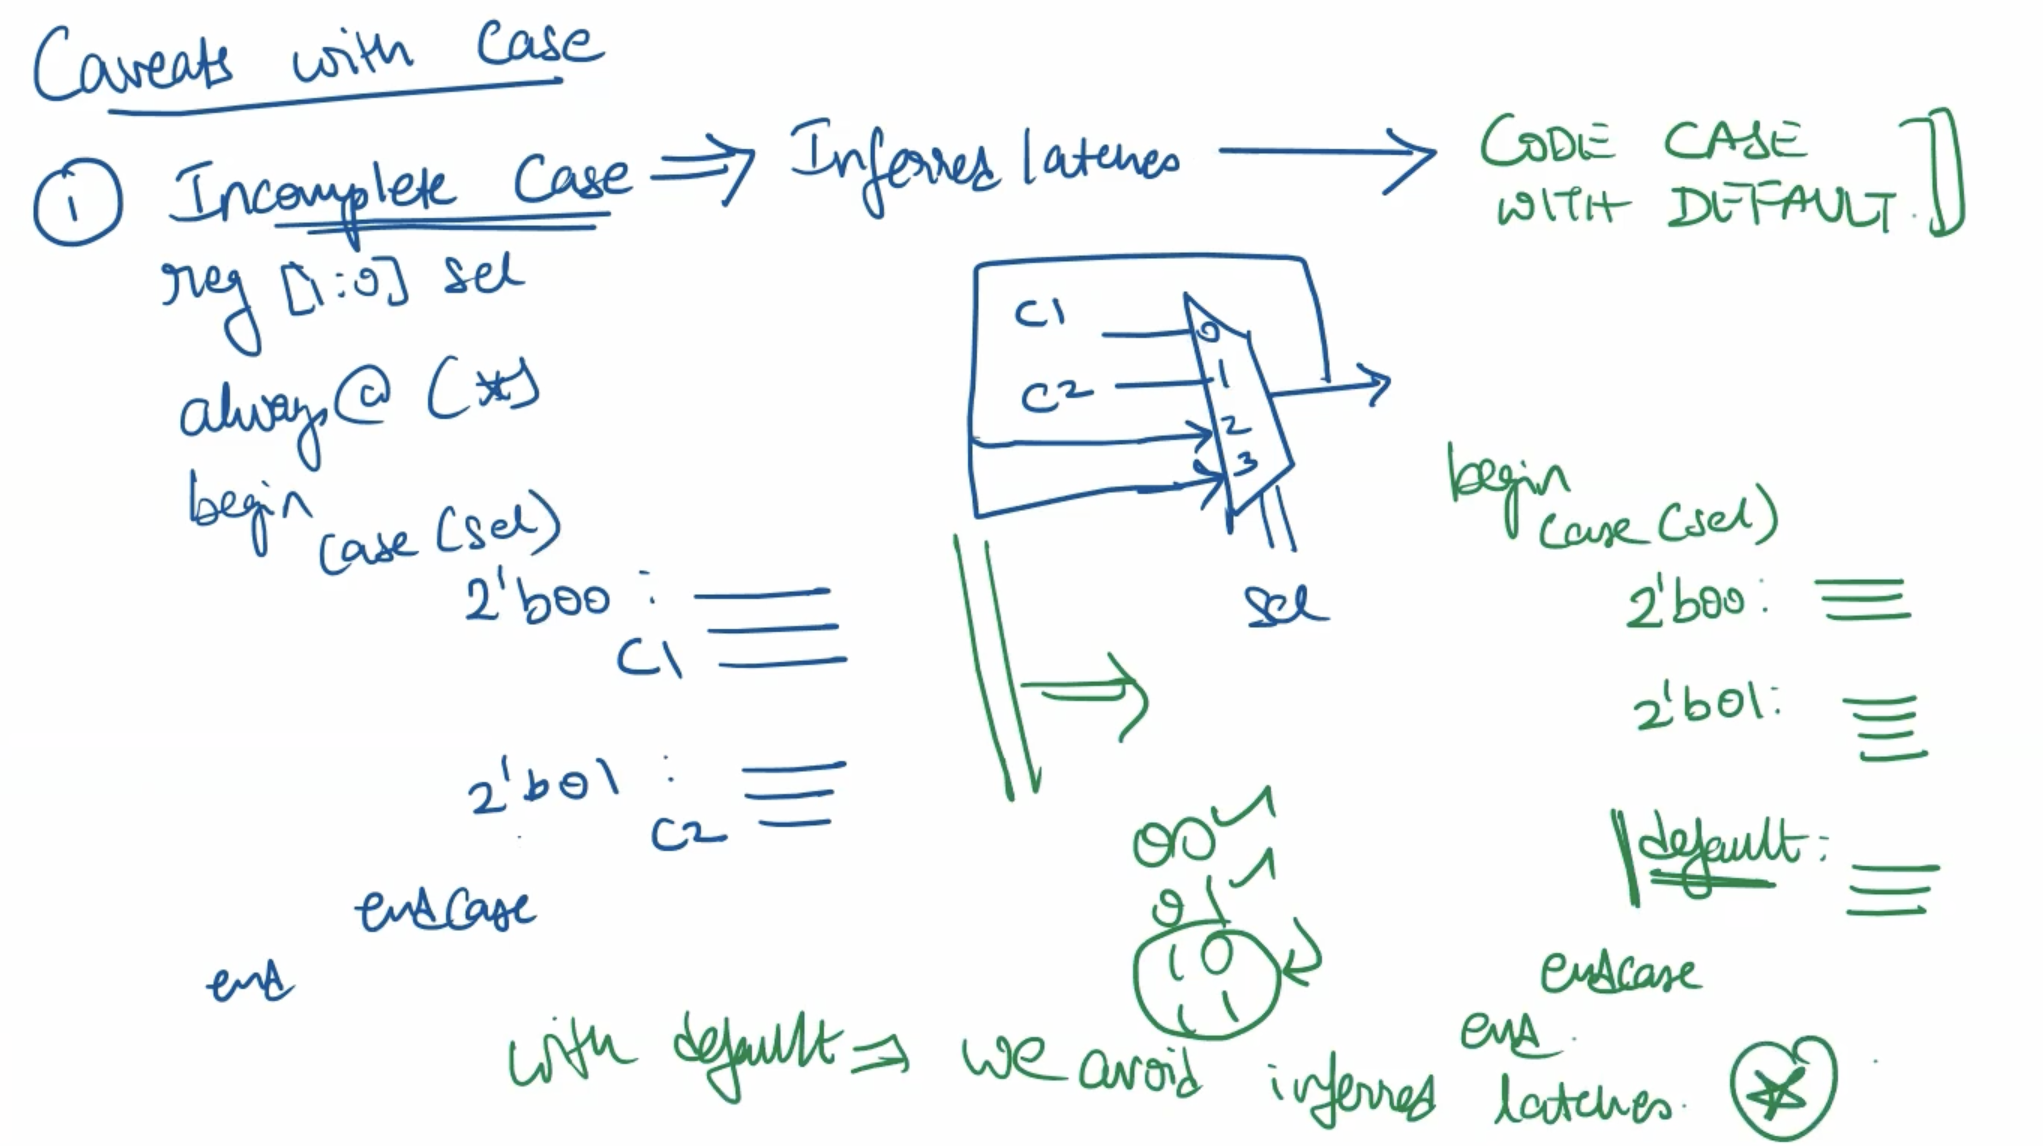 Caveats with Case
1 Incomplete Case ⇒ Inferred latches → CODE CASE
WITH DEFAULT.
reg [1:0] sel
always@ (*)
begin
case (sel)
2'b00 :
C1
2'b01 :
C2
endcase
end
C1
C2
0
1
2
3
sel
00 ✓
01 ✓
10
11
begin
case (sel)
2'b00:
2'b01:
default:
endcase
end.
with default ⇒ we avoid inferred latches.